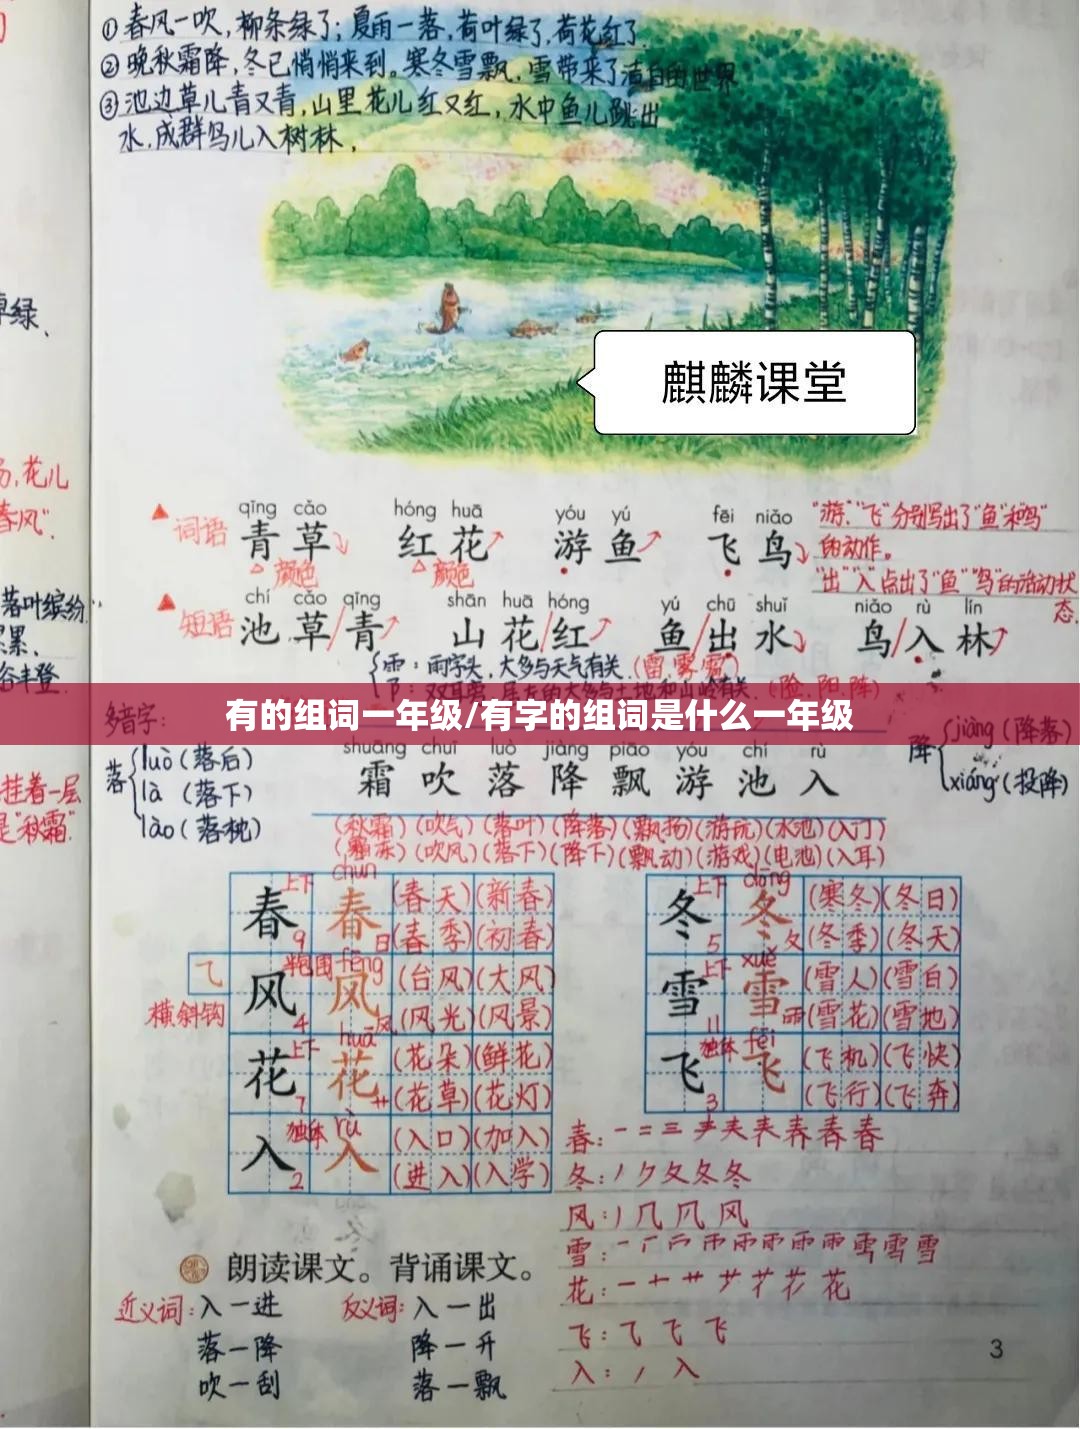 ①春风一吹,柳条绿了;夏雨一落,荷叶绿了,荷花红了.
②晚秋霜降,冬已悄悄来到。寒冬雪飘,雪带来了洁白的世界
③池边草儿青又青,山里花儿红又红,水中鱼儿跳出
水,成群鸟儿入树林,
草绿、
麒麟课堂
花儿
春风”.
qīng cǎo hóng huā yóu yú fēi niǎo
词语 青草 红花 游鱼 飞鸟
“游”“飞”分别写出了“鱼”和“鸟”
的动作。
颜色 颜色
“出”“入”点出了“鱼”“鸟”的活动状
态.
chí cǎo qīng shān huā hóng yú chū shuǐ niǎo rù lín
短语 池草/青 山花/红 鱼/出水 鸟/入林
落叶缤纷
累累、
谷丰登
雨字头,大多与天气有关.(雷,雾,雹)
有的组词一年级/有字的组词是什么一年级
多音字:
落 luò(落后)
là (落下)
lào(落枕)
降 jiàng(降落)
xiáng(投降)
shuāng chuī luò jiàng piāo yóu chí rù
霜 吹 落 降 飘 游 池 入
(秋霜)(吹气)(落叶)(降落)(飘扬)(游玩)(水池)(入门)
(霜冻)(吹风)(落下)(降下)(飘动)(游戏)(电池)(入耳)
挂着一层
是“秋霜”.
上下 chūn
春 春 (春天)(新春)
9 日 (春季)(初春)
乁 横斜钩
半包围 fēng
风 风 (台风)(大风)
4 风 (风光)(风景)
上下 huā
花 花 (花朵)(鲜花)
7 艹 (花草)(花灯)
独体 rù
入 入 (入口)(加入)
2 (进入)(入学)
上下 dōng
冬 冬 (寒冬)(冬日)
5 夂 (冬季)(冬天)
上下 xuě
雪 雪 (雪人)(雪白)
11 雨 (雪花)(雪地)
独体 fēi
飞 飞 (飞机)(飞快)
3 (飞行)(飞奔)
春:
冬:
风:
雪:
花:
飞:
入:
朗读课文。背诵课文。
近义词:入一进 反义词:入一出
落一降 降一升
吹一刮 落一飘
3